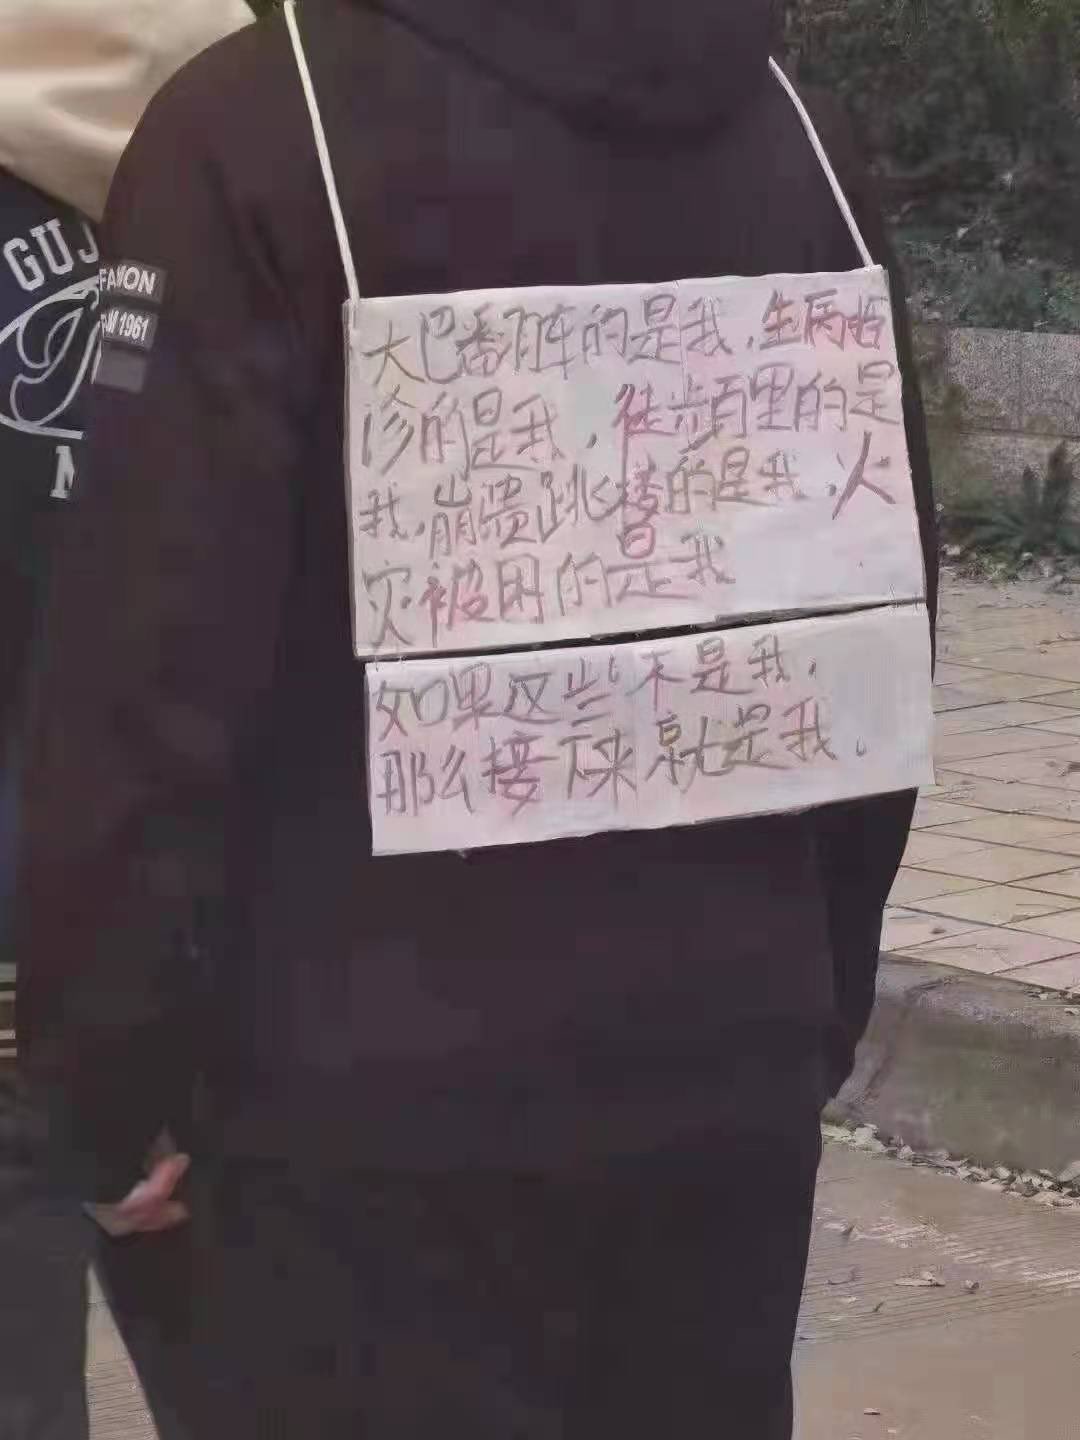 GUJ
FAMON
1961
大巴翻车的是我，生病拒
诊的是我，徒步百里的是
我，崩溃跳楼的是我，火
灾被困的是我
如果这些不是我，
那么接下来就是我。